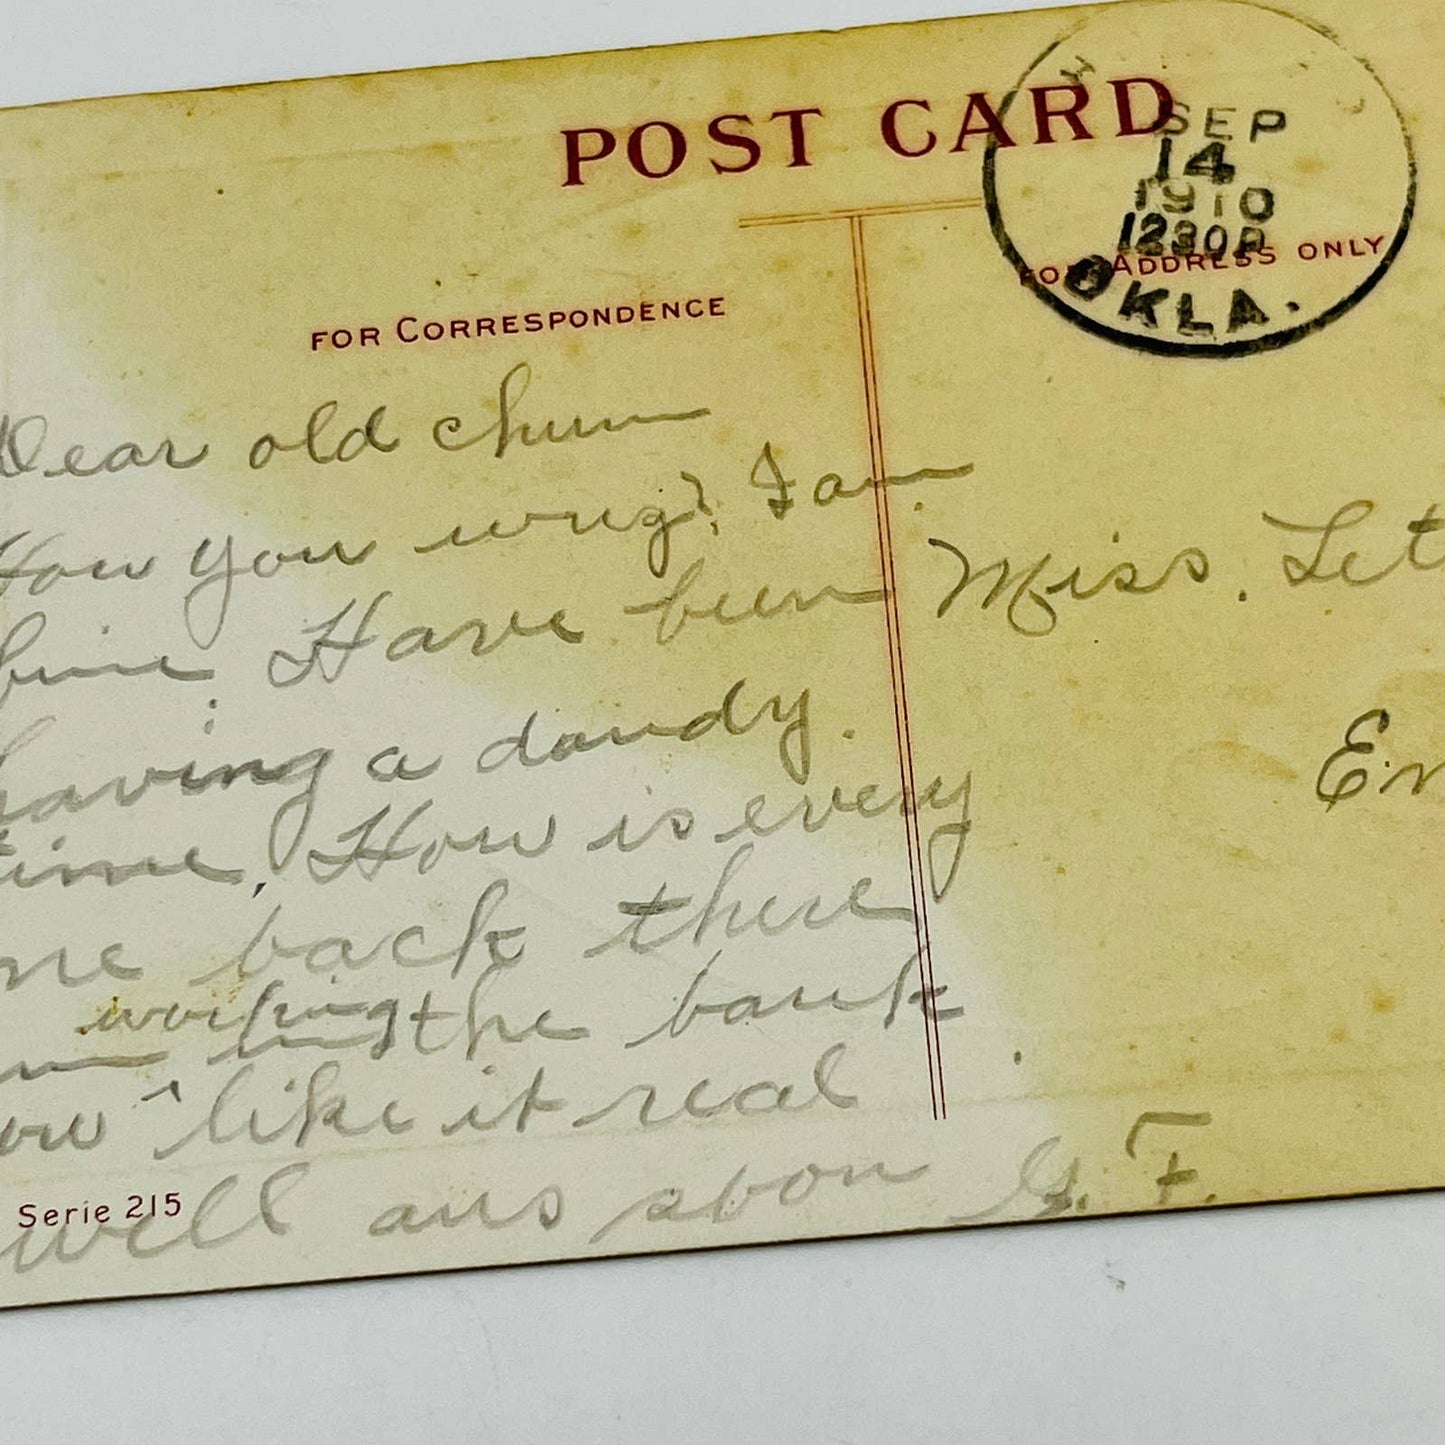 POST CARD
SEP
14
1910
1230P
OKLA.
FOR CORRESPONDENCE
FOR ADDRESS ONLY
Dear old chum
How you wug? I am
fine. Have been
having a dandy.
time, How is every
ne back there
working the bank
ow like it real
well ans soon G. F.
Miss. Let
Em
Serie 215